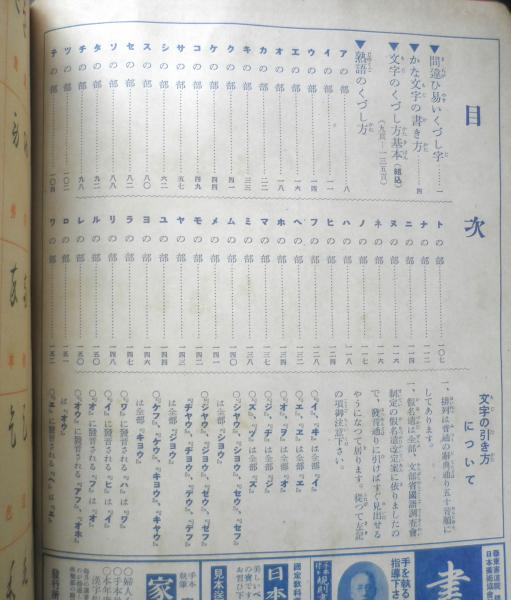 目次
▼間違ひ易いくづし字……一
▼かな文字の書き方……四
▼文字のくづし方基本(組込)
(九頁―一三五頁)
▼熟語のくづし方
アの部……八
イの部……
ウの部……一四
エの部……一六
オの部……一八
カの部……
キの部……三三
クの部……四一
ケの部……四四
コの部……四九
サの部……五七
シの部……六二
スの部……
セの部……八〇
ソの部……八八
タの部……九二
チの部……九八
ツの部……一〇二
テの部……一〇四
トの部……一〇七
ナの部……一一二
ニの部……一一四
ヌの部……
ネの部……一一六
ノの部……一一七
ハの部……一一八
ヒの部……一二四
フの部……一二八
ヘの部……
ホの部……
マの部……
ミの部……
ムの部……一四〇
メの部……
モの部……
ヤの部……一四三
ユの部……一四四
ヨの部……一四六
ラの部……一四七
リの部……一四八
ルの部……一五〇
レの部……一五〇
ロの部……一五一
ワの部……一五二
文字の引き方について
一、排列は普通の辭典通り五十音順にしてあります。
一、假名遣は全部、文部省國語調査會制定の假名遣改定案に依りましたので、發音通りに引けばすぐ見出せるやうになつて居ります。從つて左記の項御注意下さい。
〇『イ』、『ヰ』は全部『イ』
〇『エ』、『ヱ』は全部『エ』
〇『オ』、『ヲ』は全部『オ』
〇『ジ』、『ヂ』は全部『ジ』
〇『ズ』、『ヅ』は全部『ズ』
〇『シヤウ』、『シヨウ』、『セウ』、『セフ』は全部『シヨウ』
〇『ジヤウ』、『ジヨウ』、『ゼウ』、『ゼフ』
『ヂヤウ』、『ヂヨウ』、『デウ』、『デフ』は全部『ジヨウ』
〇『ケフ』、『ケウ』、『キヨウ』、『キヤウ』は全部『キヨウ』
〇『ワ』に發音される『ハ』は『ワ』
〇『イ』に發音される『ヒ』は『イ』
〇『オ』に發音される『フ』は『オ』
〇『オウ』に發音される『アフ』、『オホ』は『オウ』
〇『エ』に發音される『ヘ』は『エ』
日本美術協會
書
手を執る
指導下さ
國定教科書
日本
美しいペ
の寶です
お習ひ下
見本送
家
〇婦人
〇手本
〇本年
漢字
發行所